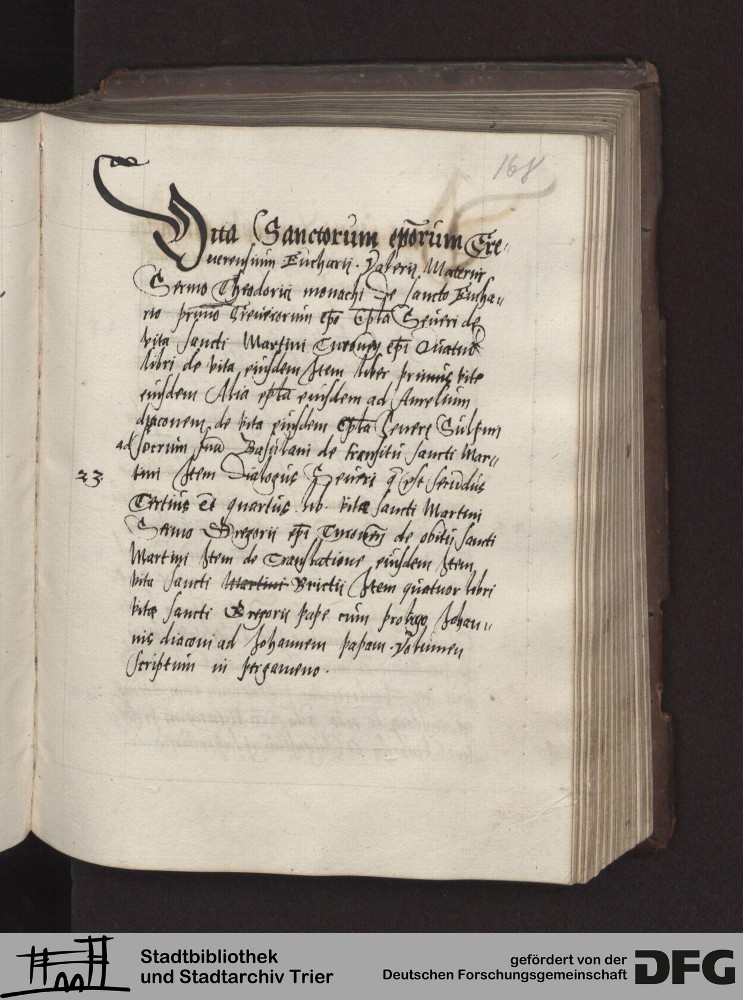 168
Vita Sanctorum ep̄orum Tre-
uerensium Eucharii. Valerii Materni
Sermo Theodorici monachi de sancto Eucha-
rio primo Treuerorum ep̄o Ep̄la Seueri de
vita sancti Martini Turonen̄ ep̄i Quatuor
libri de vita eiusdem Item liber primus vite
eiusdem Alia ep̄la eiusdem ad Aurelium
diaconem de vita eiusdem Ep̄la Seueri Sulpitii
ad socrum suā Basulani de transitu sancti Mar-
23
tini Item Dialogus Seueri q̄ est secūdus
Tertius Et quartus lib. vitæ sancti Martini
Sermo Gregorii ep̄i Turonen̄ de obitu sancti
Martini Item de Translatione eiusdem Item
vita sancti Martini Brictii Item quatuor libri
vitæ sancti Gregorii pape cum prologo Johan-
nis diaconi ad Johannem papam. Volumen
scriptum in pergameno.
Stadtbibliothek
und Stadtarchiv Trier
gefördert von der
Deutschen Forschungsgemeinschaft
DFG